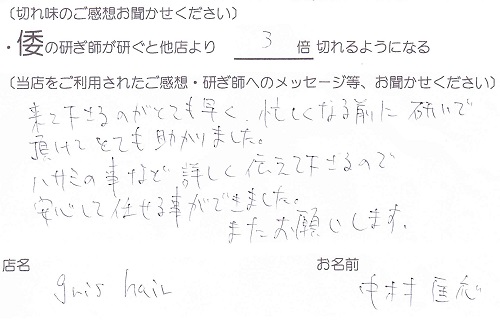 (切れ味のご感想お聞かせください)
・倭の研ぎ師が研ぐと他店より 3 倍 切れるようになる
(当店をご利用されたご感想・研ぎ師へのメッセージ等、お聞かせください)
来て下さるのがとても早く、忙しくなる前に研いで
頂けてとても助かりました。
ハサミの事など詳しく伝えて下さるので
安心して任せる事ができました。
またお願いします。
店名 お名前
hair 中村